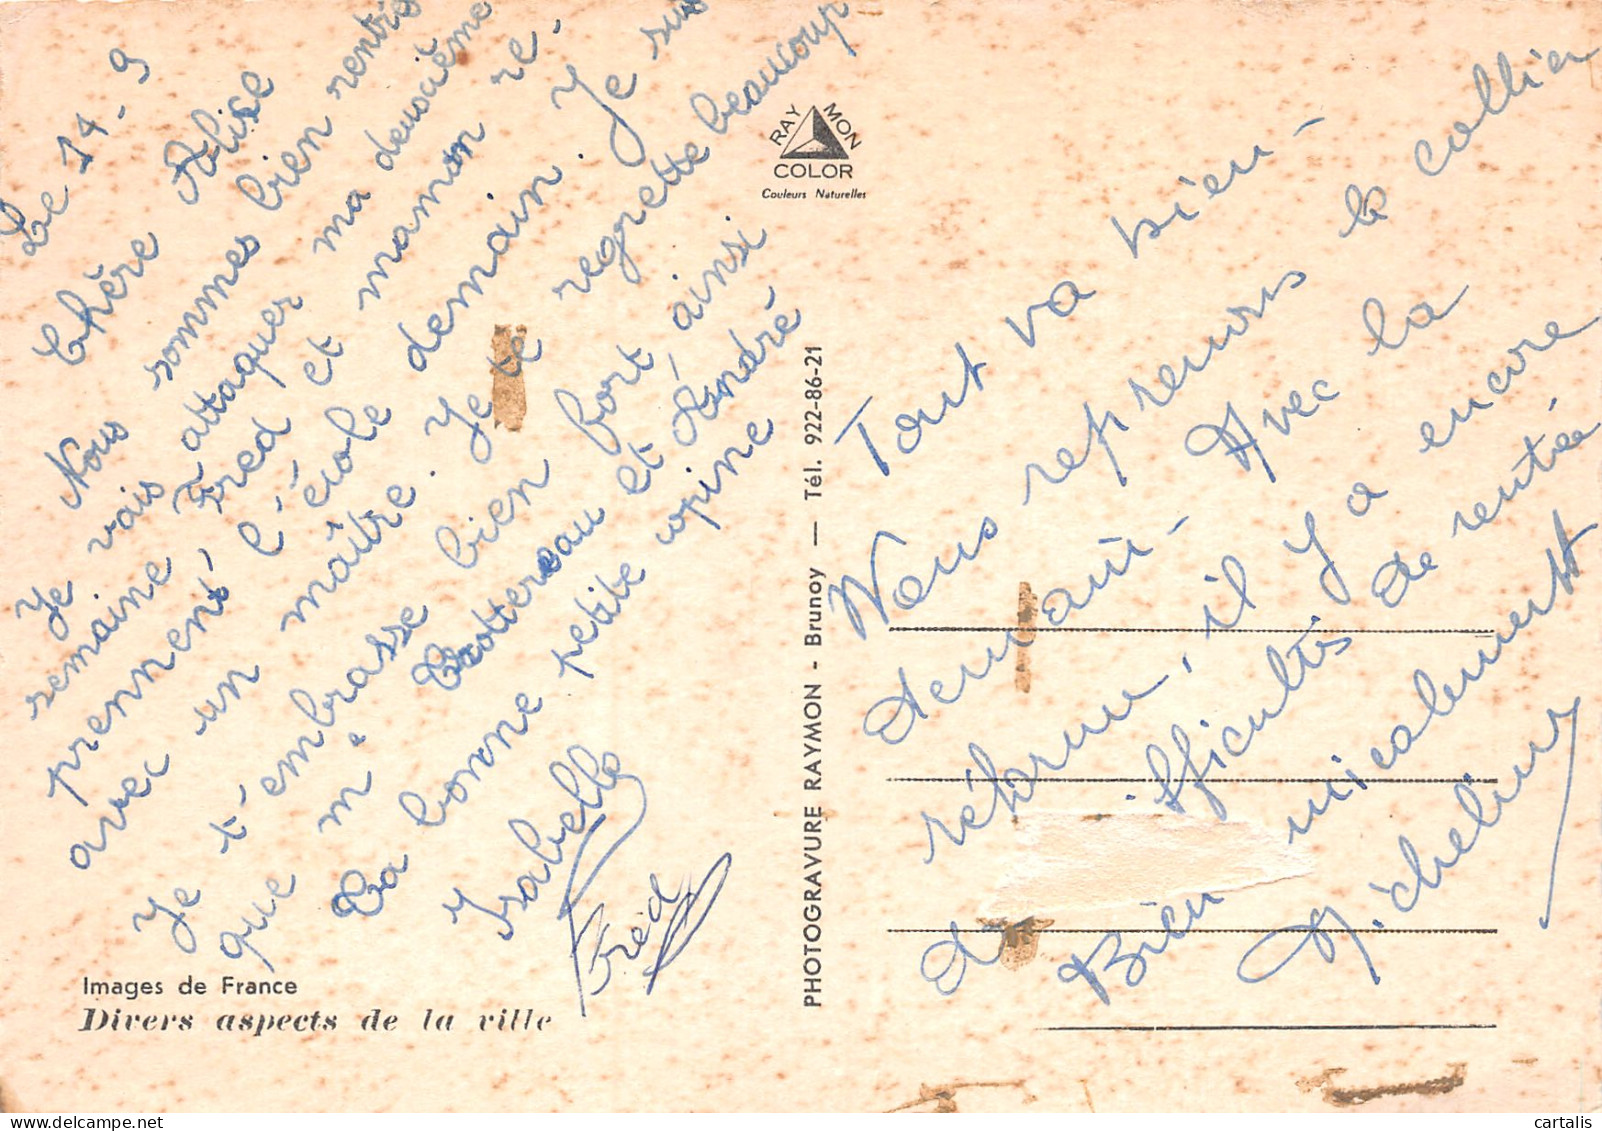 Le 14-9
Chère Alise
Nous sommes bien rentrés
Je vais attaquer ma deuxième
semaine Fred et maman re-
prennent l'école demain. Je suis
avec un maître. Je te regrette beaucoup
Je t'embrasse bien fort ainsi
que m Cottereau et André
Ta bonne petite copine
Isabelle
Fréd
Images de France
Divers aspects de la ville
RAYMON
COLOR
Couleurs Naturelles
PHOTOGRAVURE RAYMON - Brunoy — Tél. 922-86-21
Tout va bien -
Nous reprenons le collier
demain - Avec la
réforme, il y a encore
difficultés de rentrée
Bien amicalement
Micheline
cartalis